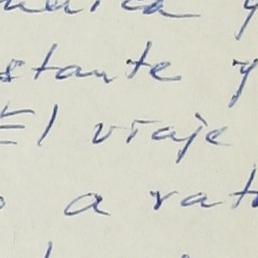 y
stante y
El viaje
a rat